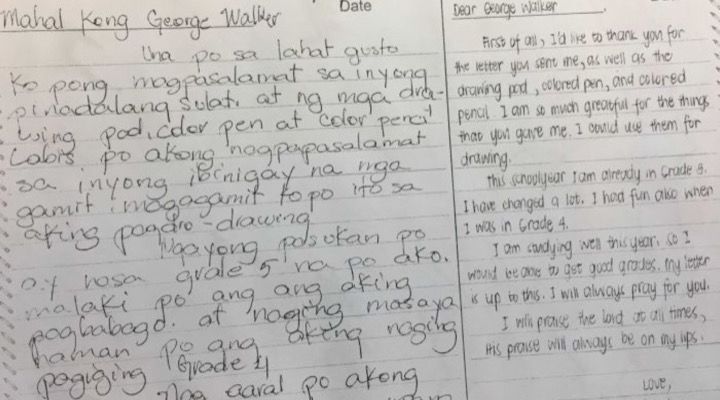 Mahal Kong George Walker
Una po sa lahat gusto
ko pong magpasalamat sa inyong
pinadalang sulat. at ng mga dra-
wing pad, color pen at color pencil
Labis po akong nagpapasalamat
sa inyong ibinigay na mga
gamit magagamit ko po ito sa
aking pagdro-drawing
Ngayong pasukan po
ay nasa grade 5 na po ako.
malaki po ang ang aking
pagbabago. at naging masaya
naman po ang aking naging
pagiging Grade 4
Nag aaral po akong
Date
Dear George Walker
First of all, I'd like to thank you for
the letter you sent me, as well as the
drawing pad, colored pen, and colored
pencil. I am so much greatful for the things
that you gave me. I could use them for
drawing.
This schoolyear I am already in Grade 5.
I have changed a lot. I had fun also when
I was in Grade 4.
I am studying well this year, so I
would be able to get good grades. My letter
is up to this. I will always pray for you.
I will praise the lord at all times,
His praise will always be on my lips.
Love,